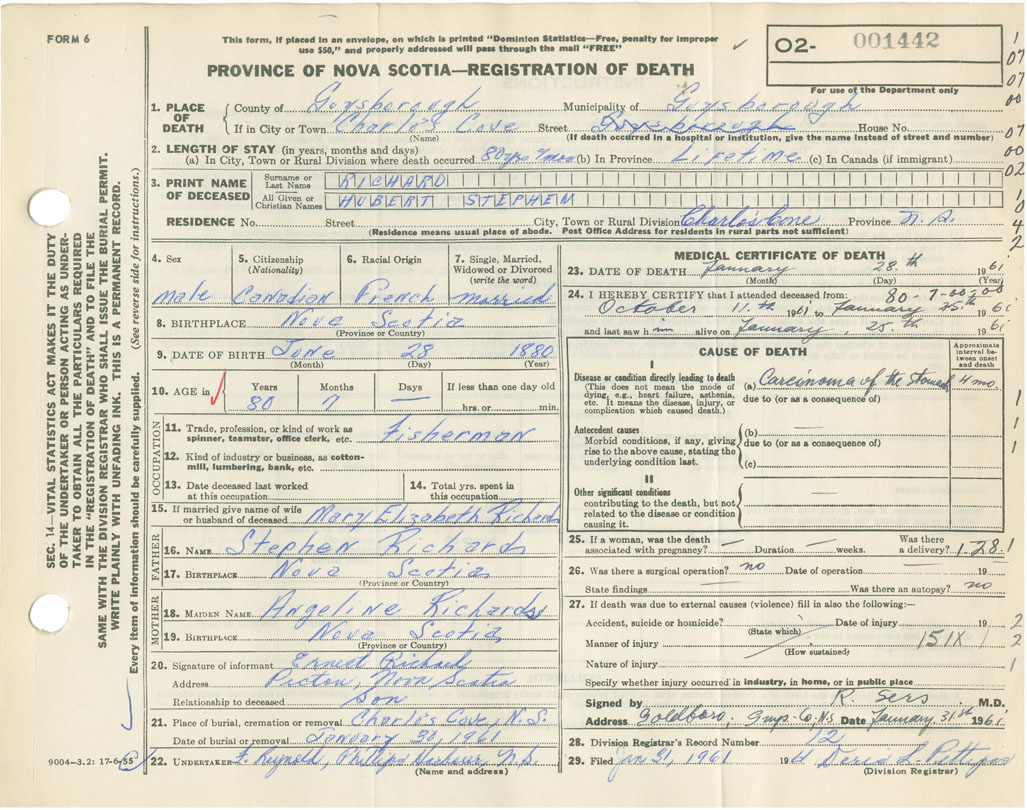 FORM 6
This form, if placed in an envelope, on which is printed "Dominion Statistics—Free, penalty for improper
use $50," and properly addressed will pass through the mail "FREE"
PROVINCE OF NOVA SCOTIA—REGISTRATION OF DEATH
O2- 001442
For use of the Department only
1. PLACE OF DEATH
County of Guysborough Municipality of Guysborough
If in City or Town Charlo's Cove Street Guysborough House No.
(Name) (If death occurred in a hospital or institution, give the name instead of street and number)
2. LENGTH OF STAY (in years, months and days)
(a) In City, Town or Rural Division where death occurred 80 yrs 7 mon (b) In Province Lifetime (c) In Canada (if immigrant)
3. PRINT NAME OF DECEASED
Surname or Last Name RICHARD
All Given or Christian Names HUBERT STEPHEN
RESIDENCE No. Street City, Town or Rural Division Charlos Cove Province N. S.
(Residence means usual place of abode. Post Office Address for residents in rural parts not sufficient)
4. Sex
Male
5. Citizenship
(Nationality)
Canadian
6. Racial Origin
French
7. Single, Married,
Widowed or Divorced
(write the word)
Married
8. BIRTHPLACE Nova Scotia
(Province or Country)
9. DATE OF BIRTH June 28 1880
(Month) (Day) (Year)
10. AGE in
Years Months Days If less than one day old
80 7 — hrs. or min.
OCCUPATION
11. Trade, profession, or kind of work as
spinner, teamster, office clerk, etc. Fisherman
12. Kind of industry or business, as cotton-
mill, lumbering, bank, etc.
13. Date deceased last worked
at this occupation
14. Total yrs. spent in
this occupation
15. If married give name of wife
or husband of deceased Mary Elizabeth Richard
FATHER
16. NAME Stephen Richard
17. BIRTHPLACE Nova Scotia
(Province or Country)
MOTHER
18. MAIDEN NAME Angeline Richards
19. BIRTHPLACE Nova Scotia
(Province or Country)
20. Signature of informant Ernest Richard
Address Pictou, Nova Scotia
Relationship to deceased son
21. Place of burial, cremation or removal Charlo's Cove, N.S.
Date of burial or removal January 30, 1961
22. UNDERTAKER Phillips Harbour, N.S.
(Name and address)
9004—3.2: 17-6-55
MEDICAL CERTIFICATE OF DEATH
23. DATE OF DEATH January 28th 1961
(Month) (Day) (Year)
24. I HEREBY CERTIFY that I attended deceased from: 80-7-00-00
October 11th 1961 to January 25th 1961
and last saw him alive on January, 25th 1961
CAUSE OF DEATH
Approximate
interval be-
tween onset
and death
I
Disease or condition directly leading to death
(This does not mean the mode of
dying, e.g., heart failure, asthenia,
etc. It means the disease, injury, or
complication which caused death.)
(a) Carcinoma of the Stomach 4 mo.
due to (or as a consequence of)
Antecedent causes
Morbid conditions, if any, giving
rise to the above cause, stating the
underlying condition last.
(b) —
due to (or as a consequence of)
(c)
II
Other significant conditions
contributing to the death, but not
related to the disease or condition
causing it.
25. If a woman, was the death
associated with pregnancy? — Duration — weeks. Was there
a delivery? 1-28-1
26. Was there a surgical operation? no Date of operation — 19
State findings Was there an autopsy? no
27. If death was due to external causes (violence) fill in also the following:—
Accident, suicide or homicide? Date of injury 19
(State which)
Manner of injury 151X
(How sustained)
Nature of injury
Specify whether injury occurred in industry, in home, or in public place
Signed by R. Sers M.D.
Address Goldboro, Guys. Co, N.S Date January 31st 1961
28. Division Registrar's Record Number 12
29. Filed Jan 31, 1961 196
(Division Registrar)
SEC. 14—VITAL STATISTICS ACT MAKES IT THE DUTY
OF THE UNDERTAKER OR PERSON ACTING AS UNDER-
TAKER TO OBTAIN ALL THE PARTICULARS REQUIRED
IN THE "REGISTRATION OF DEATH" AND TO FILE THE
SAME WITH THE DIVISION REGISTRAR WHO SHALL ISSUE THE BURIAL PERMIT.
WRITE PLAINLY WITH UNFADING INK. THIS IS A PERMANENT RECORD.
Every item of information should be carefully supplied. (See reverse side for instructions.)
1
07
07
00
07
00
02
1
0
4
2
1
1
1
1
2
2
1